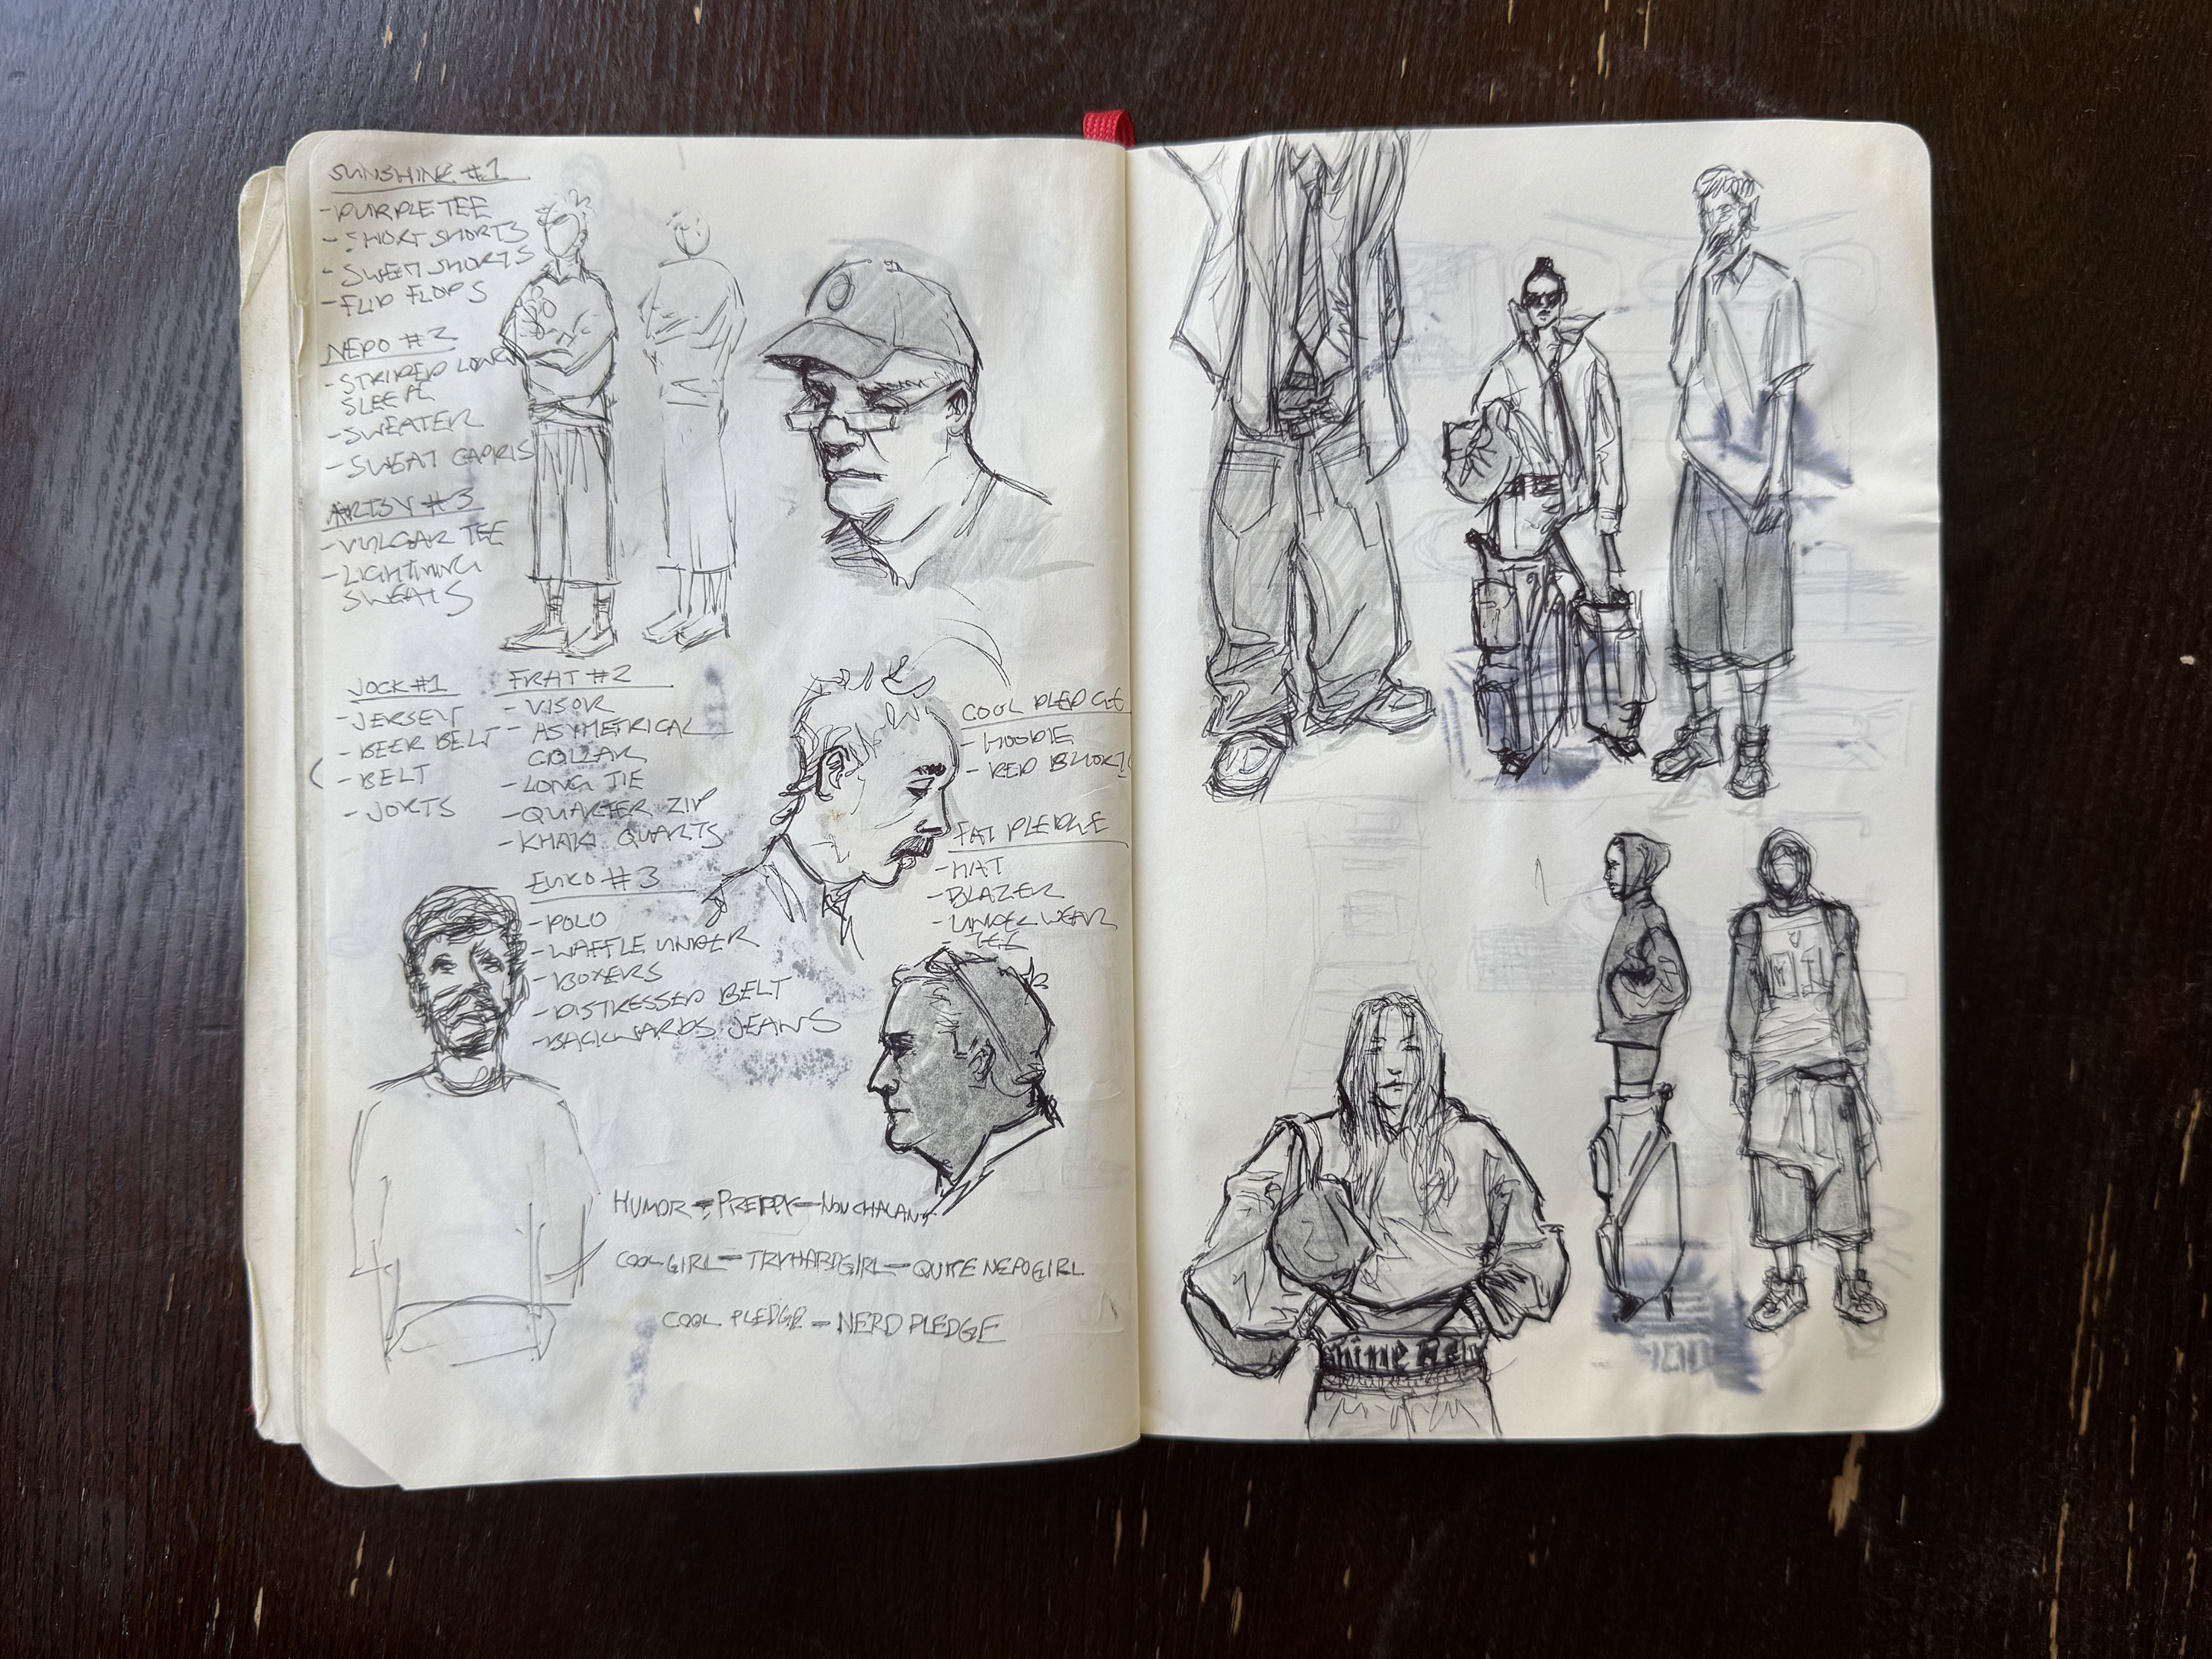 SUNSHINE #1
- PURPLE TEE
- SHORT SHORTS
- SWEAT SHORTS
- FLIP FLOPS
NEPO #2
- STRIPED LONG
SLEEVE
- SWEATER
- SWEAT CAPRIS
ARTSY #3
- VULGAR TEE
- LIGHTNING
SWEATS
JOCK #1
- JERSEY
- BEER BELT
- BELT
- JORTS
FRAT #2
- VISOR
- ASYMETRICAL
COLLAR
- LONG TIE
- QUARTER ZIP
- KHAKI QUARTS
EURO #3
- POLO
- WAFFLE UNDER
- BOXERS
- DISTRESSED BELT
- BACKWARDS JEANS
COOL PLEDGE
- HOODIE
- RED
FAT PLEDGE
- HAT
- BLAZER
- UNDERWEAR
- TEE
HUMOR - PREPPY - NONCHALANT
COOL GIRL - TRYHARD GIRL - QUITE NEPO GIRL
COOL PLEDGE - NERD PLEDGE
MI
shine